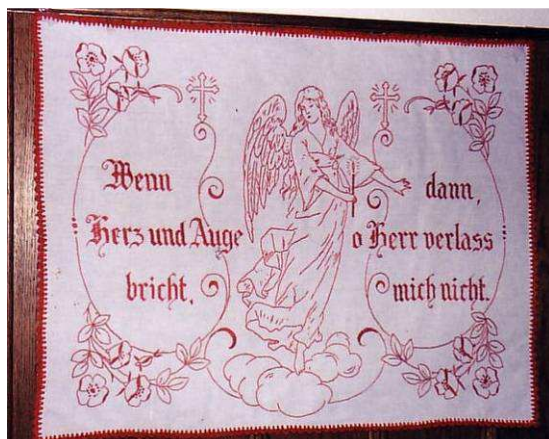 Wenn
Herz und Auge
bricht,
dann,
o Herr verlass
mich nicht.